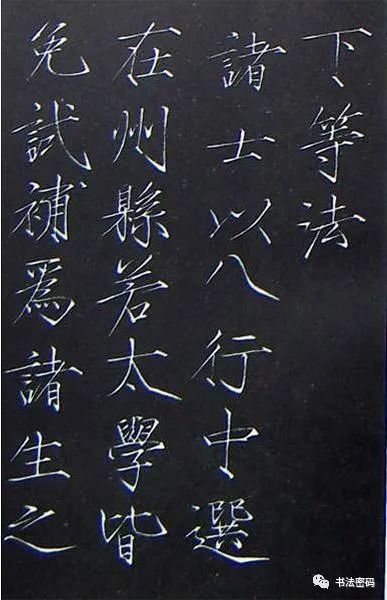 下等法
諸士以八行中選
在州縣若太學皆
免試補爲諸生之
书法密码